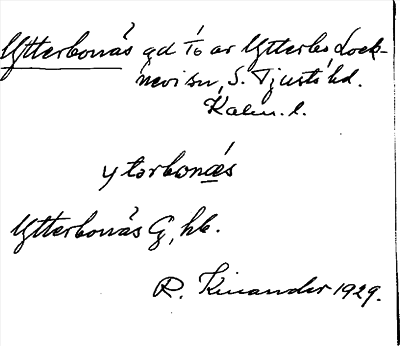 Ytterbonäs gd 1/0 av Ytterbo, Lock-
nevi sn, S. Tjusts hd.
Kalm. l.
ytərbonæs
Ytterbonäs G, hb.
R. Kinander 1929.